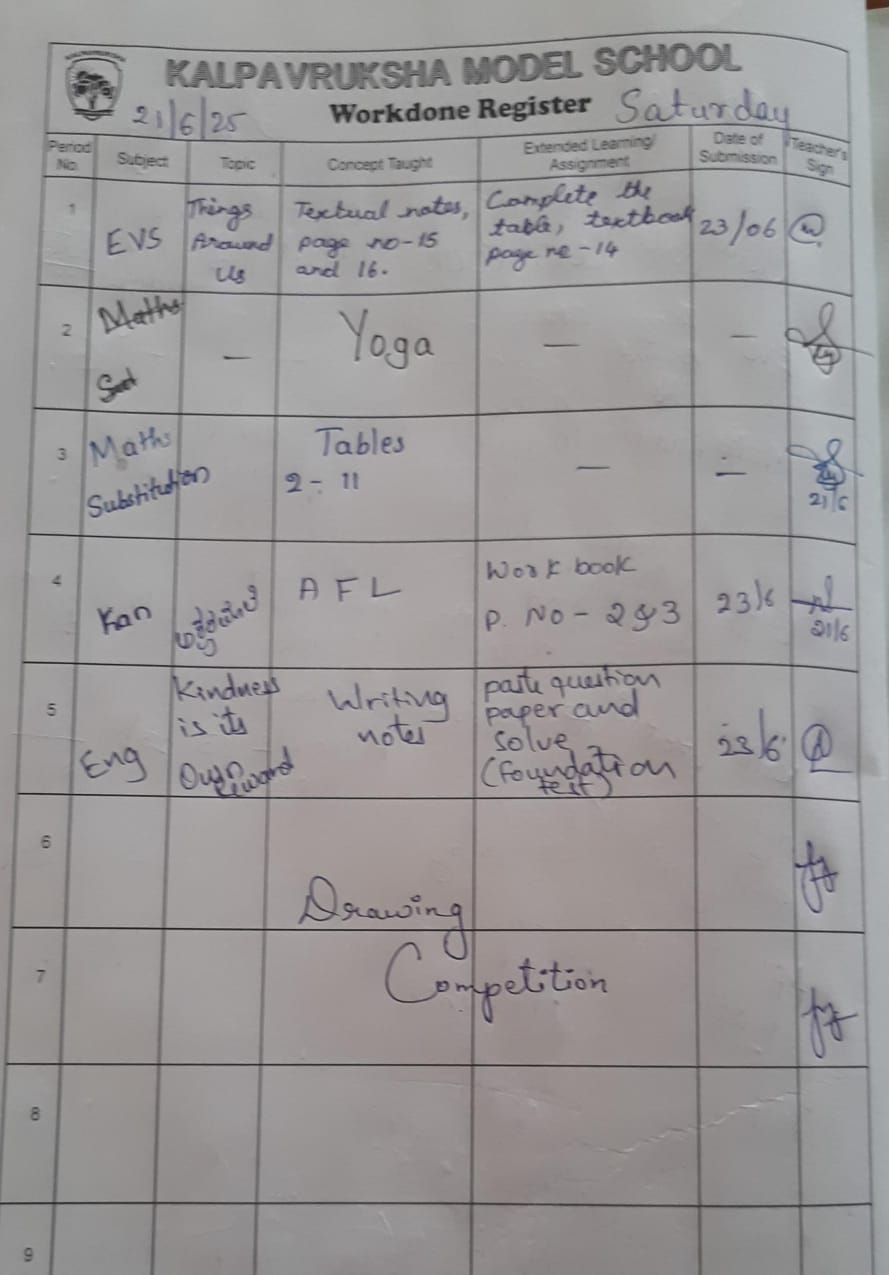 KALPAVRUKSHA MODEL SCHOOL
21/6/25 Workdone Register Saturday
Period No. Subject Topic Concept Taught Extended Learning/ Assignment Date of Submission Teacher's Sign
1 EVS Things Around Us Textual notes, page no-15 and 16. Complete the table, textbook page no-14 23/06
2 Maths — Yoga — —
3 Maths Substitution Tables 2 - 11 — — 21/6
4 Kan AFL Work book P. NO - 2 & 3 23/6 21/6
5 Eng Kindness is its Own reward Writing notes paste question paper and solve (Foundation test) 23/6
6 Drawing
7 Competition
8
9